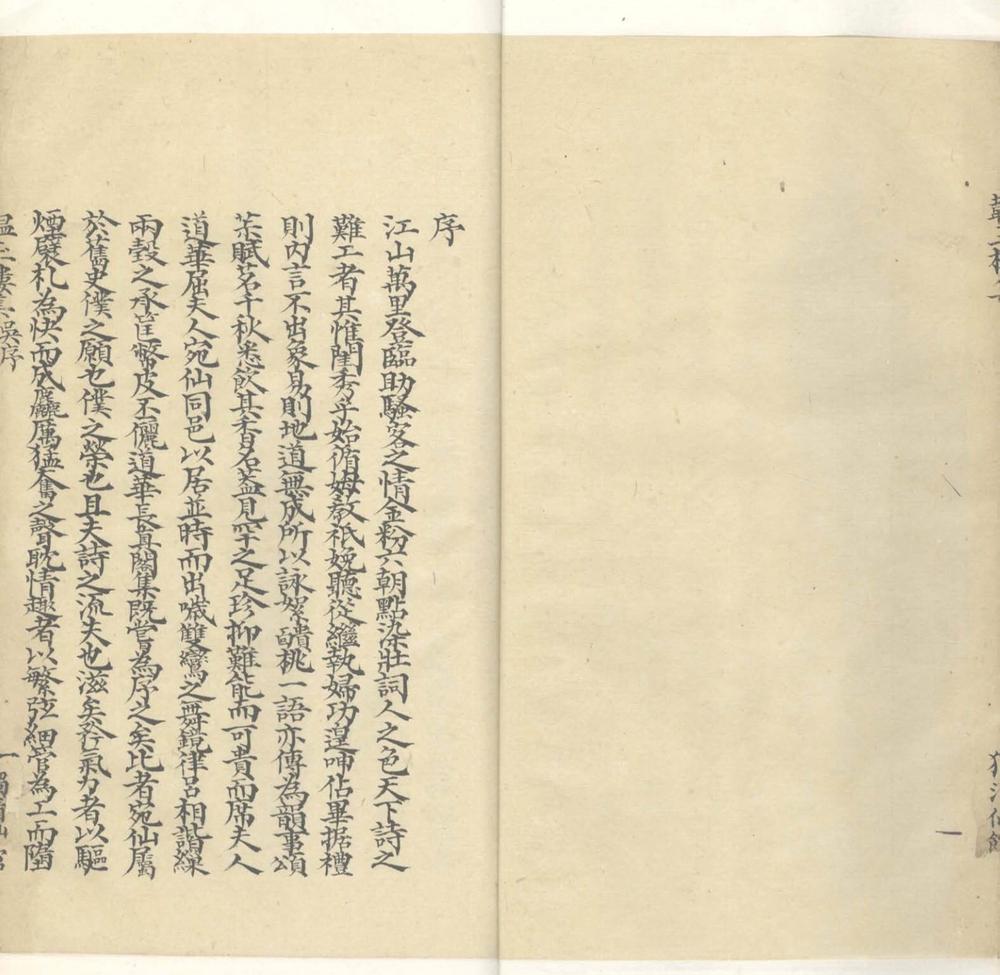 序
江山萬里登臨助騷客之情金粉六朝點染壯詞人之色天下詩之
難工者其惟閨秀乎始循姆教祇婉聽從繼執婦功遑呻佔畢据禮
則內言不出象易則地道無成所以詠絮醻桃一語亦傳為韻事頌
茶賦茗千秋悉飲其香名葢見罕之足珍抑難能而可貴而席夫人
道華屈夫人宛仙同邑以居並時而出噦雙鸞之舞鏡律呂相諧繅
兩瑴之承筐幣皮丕儷道華長真閣集既嘗為序之矣比者宛仙屬
於舊史僕之願也僕之榮也且夫詩之流夫也滋矣矜氣力者以驅
煙襞札為快而成麤厲猛奮之聲耽情趣者以繁弦細管為工而隨
韞玉樓集吳序